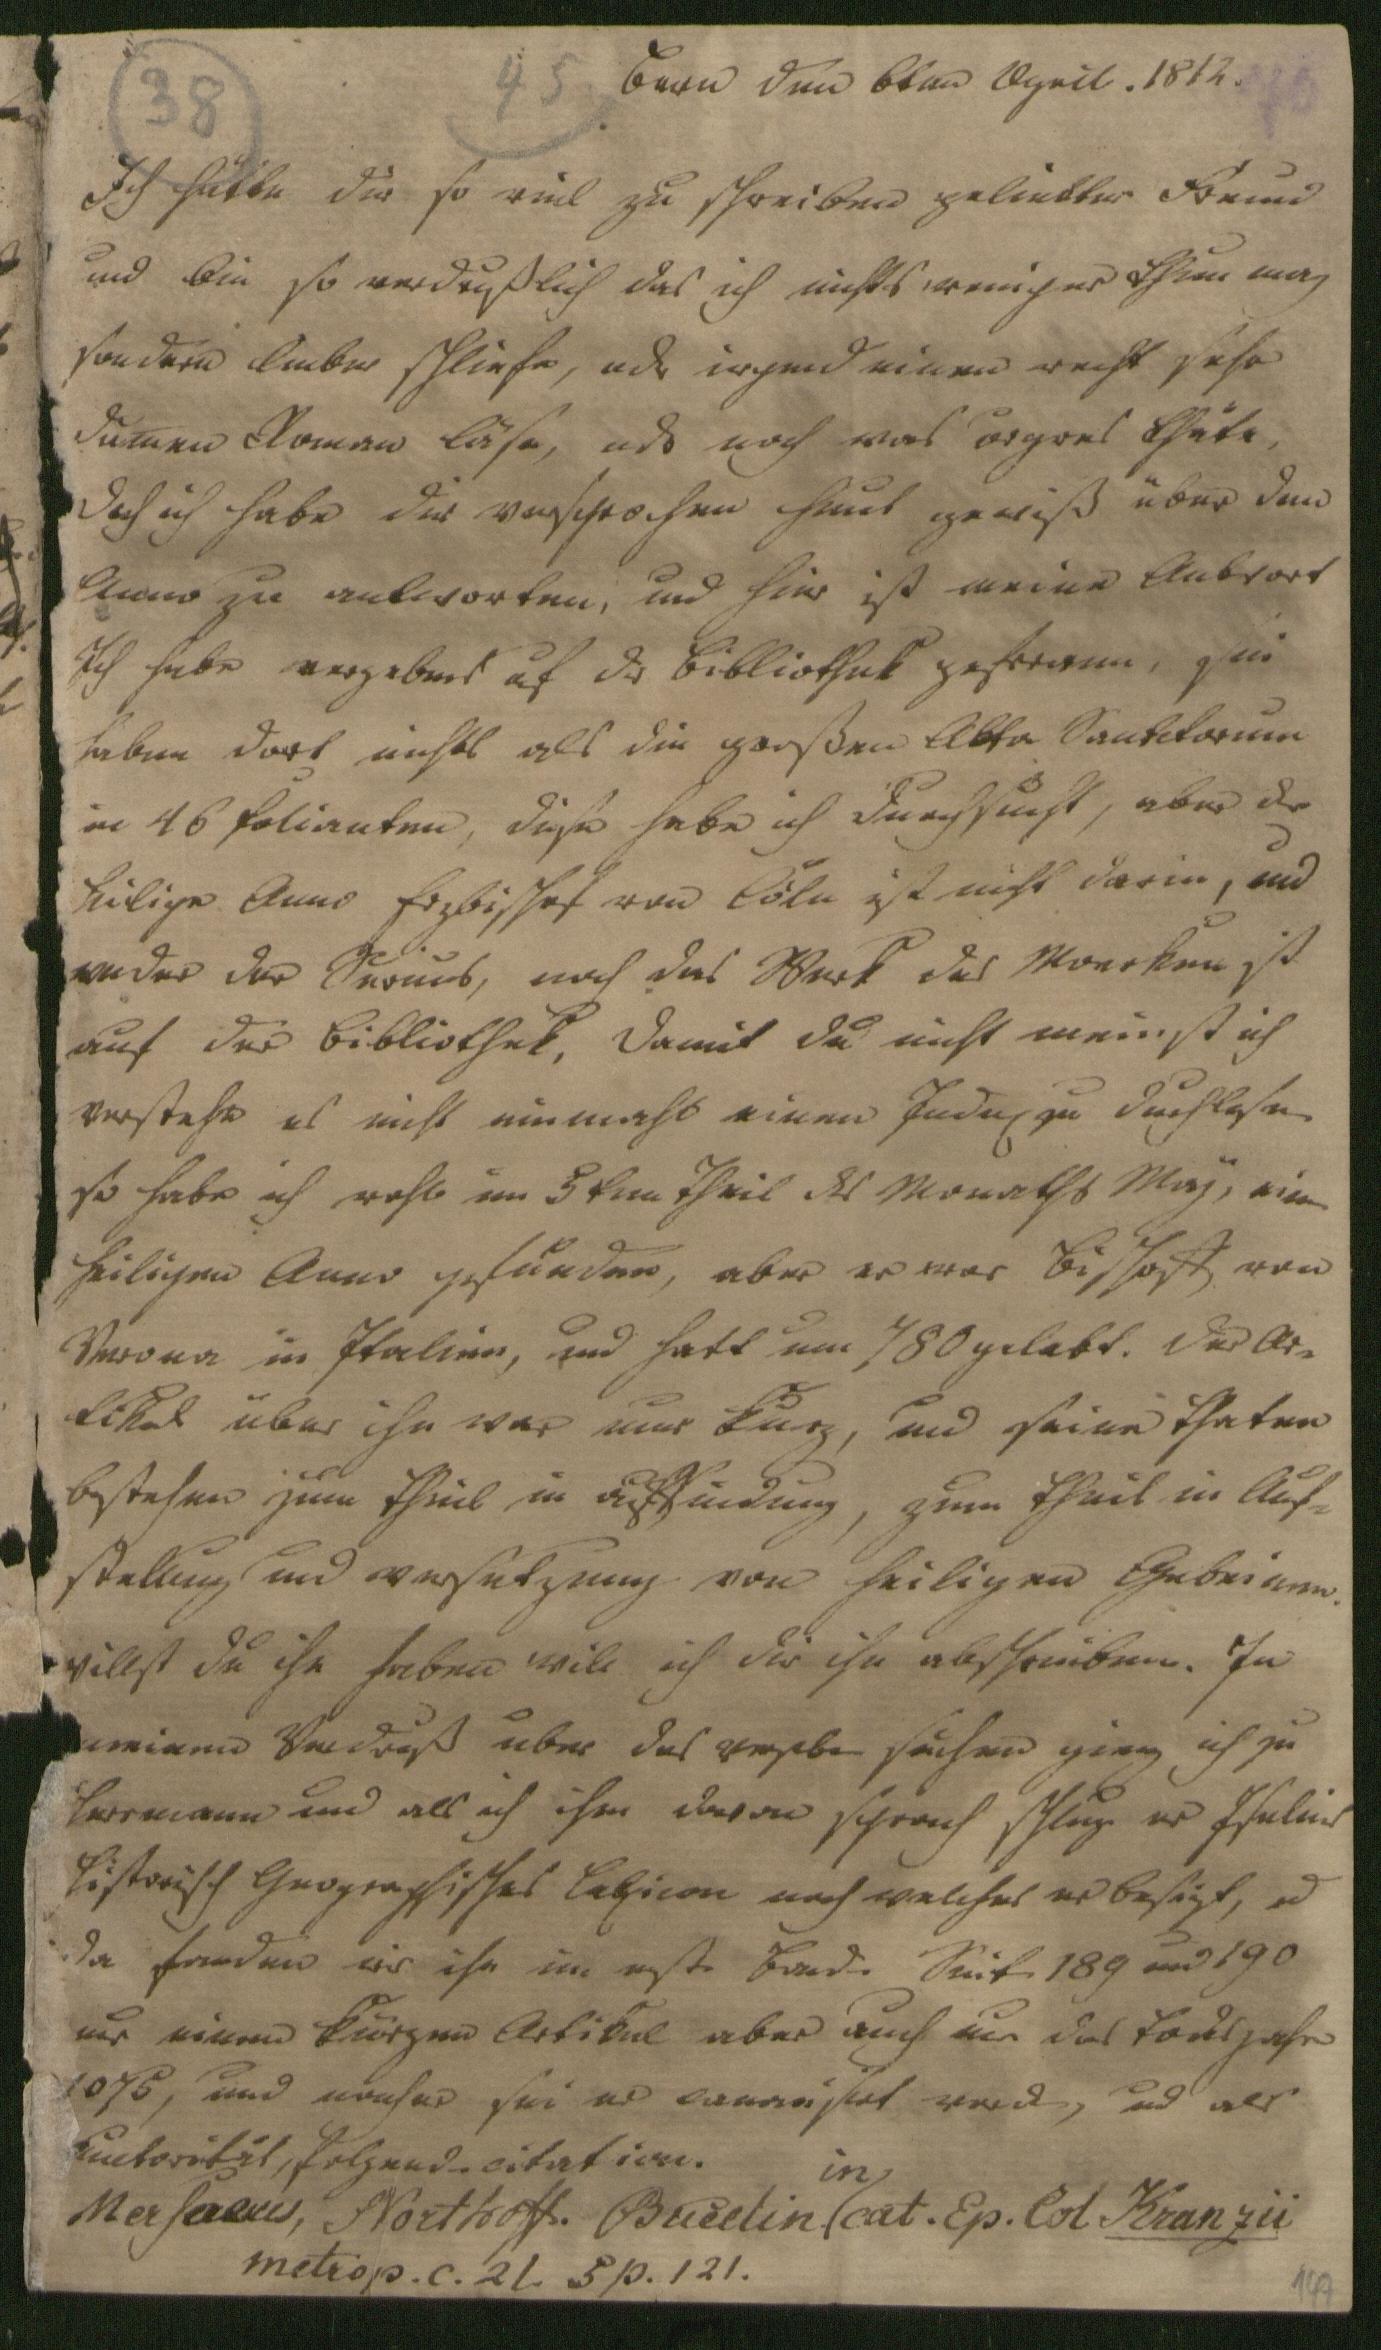 38
45
Bern den 6ten April. 1812.
Ich hätte dir so viel zu schreiben geliebter Freund
und bin so verdrußlich das ich nichts weniger thun mag
sondern lieber schliefe, oder irgend einen recht sehr
dumen Roman läse, ods noch was ärgres thäte,
doch ich habe dir versprochen heut gewiß über den
Anno zu antworten, und hier ist meine Antwort
Ich habe vergebens auf der Bibliothek gefroren, sie
haben dort nichts als die großen Akta Sanktorum
in 46 folianten, diese habe ich durchsucht, aber der
heilige Anno Erzbischof von Cöln ist nicht darin, und
weder der Surius, noch das Werk des Moerken ist
auf der Bibliothek. Damit du nicht meinst ich
verstehe es nicht einmahl einen Index zu duchlesen
so habe ich wohl im 5ten Theil des Monaths Maÿ, ein
heiligen Anno gefunden, aber er war Bischoff von
Verona in Italien, und hatt um 780 gelebt. Der Ar-
tikel über ihn war nur kurz, und seine thaten
bestehen zum theil in auffindung, zum theil in Auf-
stellung und versetzung von heiligen Gebeinen.
willst du ihn haben will ich dir ihn abschreiben. In
meinem Verdruß uber das vergeben suchen gieng ich zu
Herrmann und als ich ihm davon sprach schlug er Iselins
Historisch Geographisches Lexicon nach welches er besizt, u
da fanden wir ihn im erste Bande Seite 189 und 190
nur einen kurzen Artikel aber auch nur das todesjahr
1075, und nachher sei er canonisirt word, und als
Autorität, folgende citation.
in
Mersaeus, Northoff. Bucelin (cat. Ep. Col Kranzii
metrop. c. 21. 5 p. 121.
147